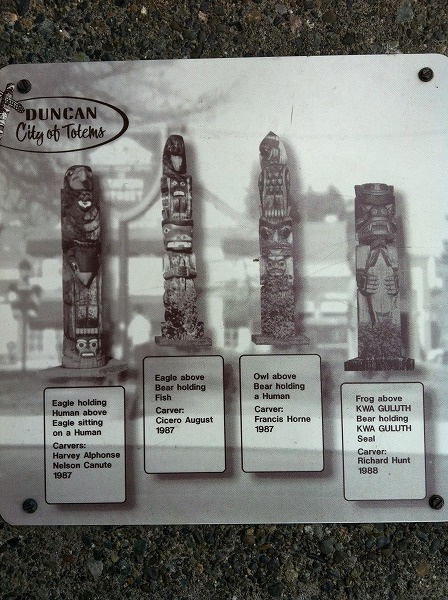 DUNCAN
City of Totems
Eagle holding
Human above
Eagle sitting
on a Human
Carvers:
Harvey Alphonse
Nelson Canute
1987
Eagle above
Bear holding
Fish
Carver:
Cicero August
1987
Owl above
Bear holding
a Human
Carver:
Francis Horne
1987
Frog above
KWA GULUTH
Bear holding
KWA GULUTH
Seal
Carver:
Richard Hunt
1988